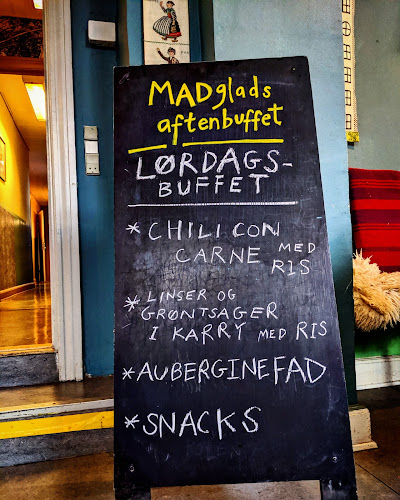 MADglads
aftenbuffet
LØRDAGS-
BUFFET
* CHILI CON
CARNE MED
RIS
* LINSER OG
GRØNTSAGER
I KARRY MED RIS
* AUBERGINEFAD
* SNACKS